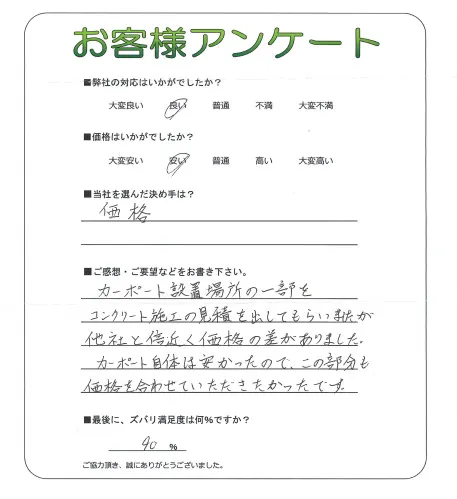 お客様アンケート
■弊社の対応はいかがでしたか？
大変良い 良い 普通 不満 大変不満
■価格はいかがでしたか？
大変安い 安い 普通 高い 大変高い
■当社を選んだ決め手は？
価格
■ご感想・ご要望などをお書き下さい。
カーポート設置場所の一部を
コンクリート施工の見積を出してもらいましたが
他社と倍近く価格の差がありました。
カーポート自体は安かったので、この部分も
価格を合わせていただきたかったです。
■最後に、ズバリ満足度は何％ですか？
90 ％
ご協力頂き、誠にありがとうございました。